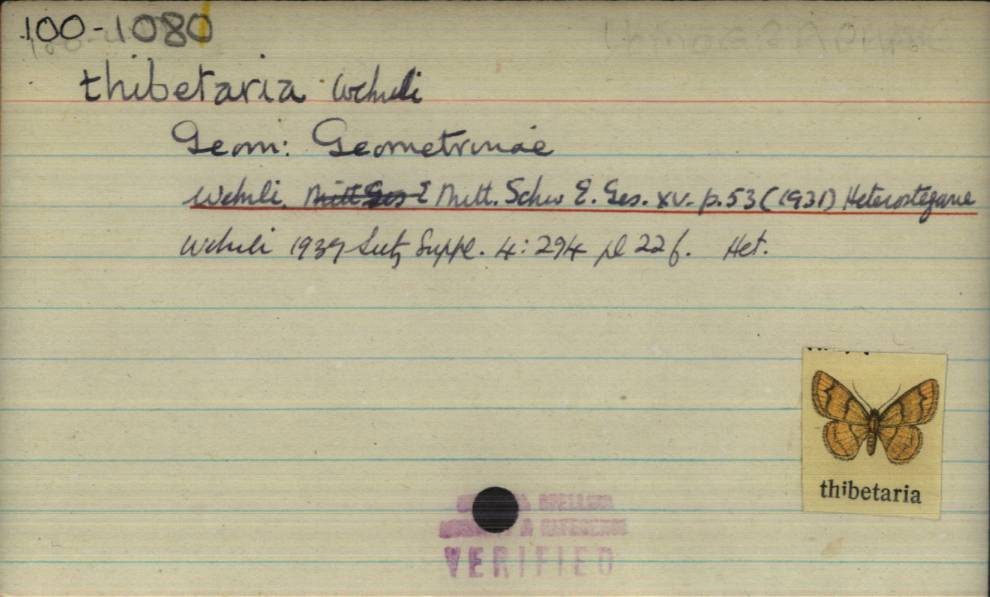 100-1080
thibetaria Wehrli
Geom: Geometrinae
Wehrli. Mitt Ges E Mitt. Schw E. Ges. XV. p. 53 (1931) Heterostegane
Wehrli 1939 Seitz Suppl. 4: 294 pl 22 f. Het.
thibetaria
SPELLING
& REFERENCE
VERIFIED